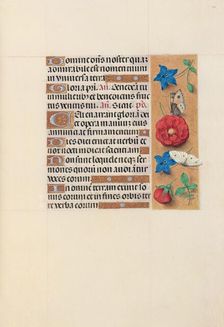 Domine dns noster quam
admirabile est nomen tuum in
universa terra
Gloria pri. an.
tus ventris tui. an. Sicut. ps.
Celi enarrant gloriam
dei et opera manuum eius an
nunciat firmamentum
Dies diei eructat verbum et
nox nocti indicat scientiam
Non sunt loquele neq ser
mones quorum non audiantur
voces eorum
In omnem terram exivit so
nus eorum et in fines orbis ter
re verba eorum